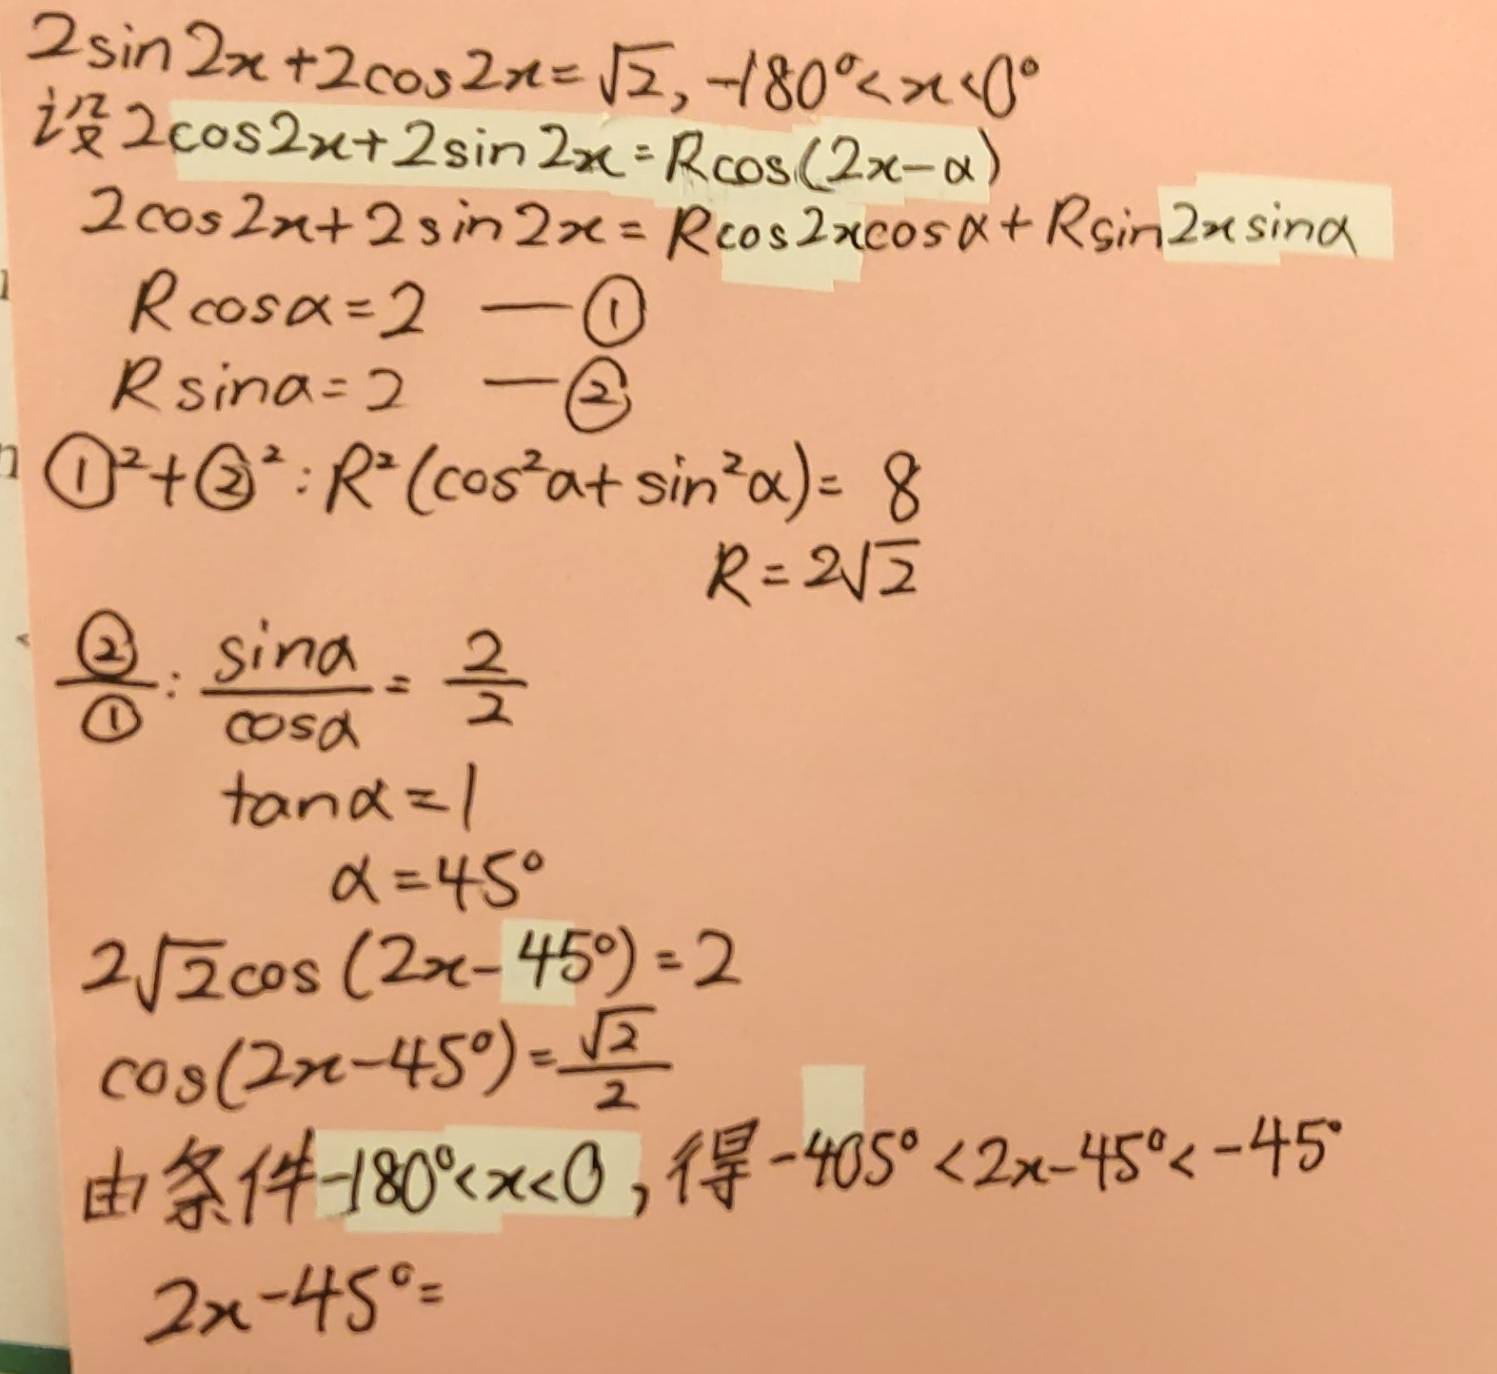 2sin2x+2cos2x=√2, -180°<x<0°
设2cos2x+2sin2x=Rcos(2x-α)
2cos2x+2sin2x=Rcos2xcosα+Rsin2xsinα
Rcosα=2 —①
Rsinα=2 —②
①²+②²:R²(cos²α+sin²α)=8
R=2√2
②/①: sinα/cosα=2/2
tanα=1
α=45°
2√2cos(2x-45°)=2
cos(2x-45°)=√2/2
由条件-180°<x<0,得-405°<2x-45°<-45°
2x-45°=